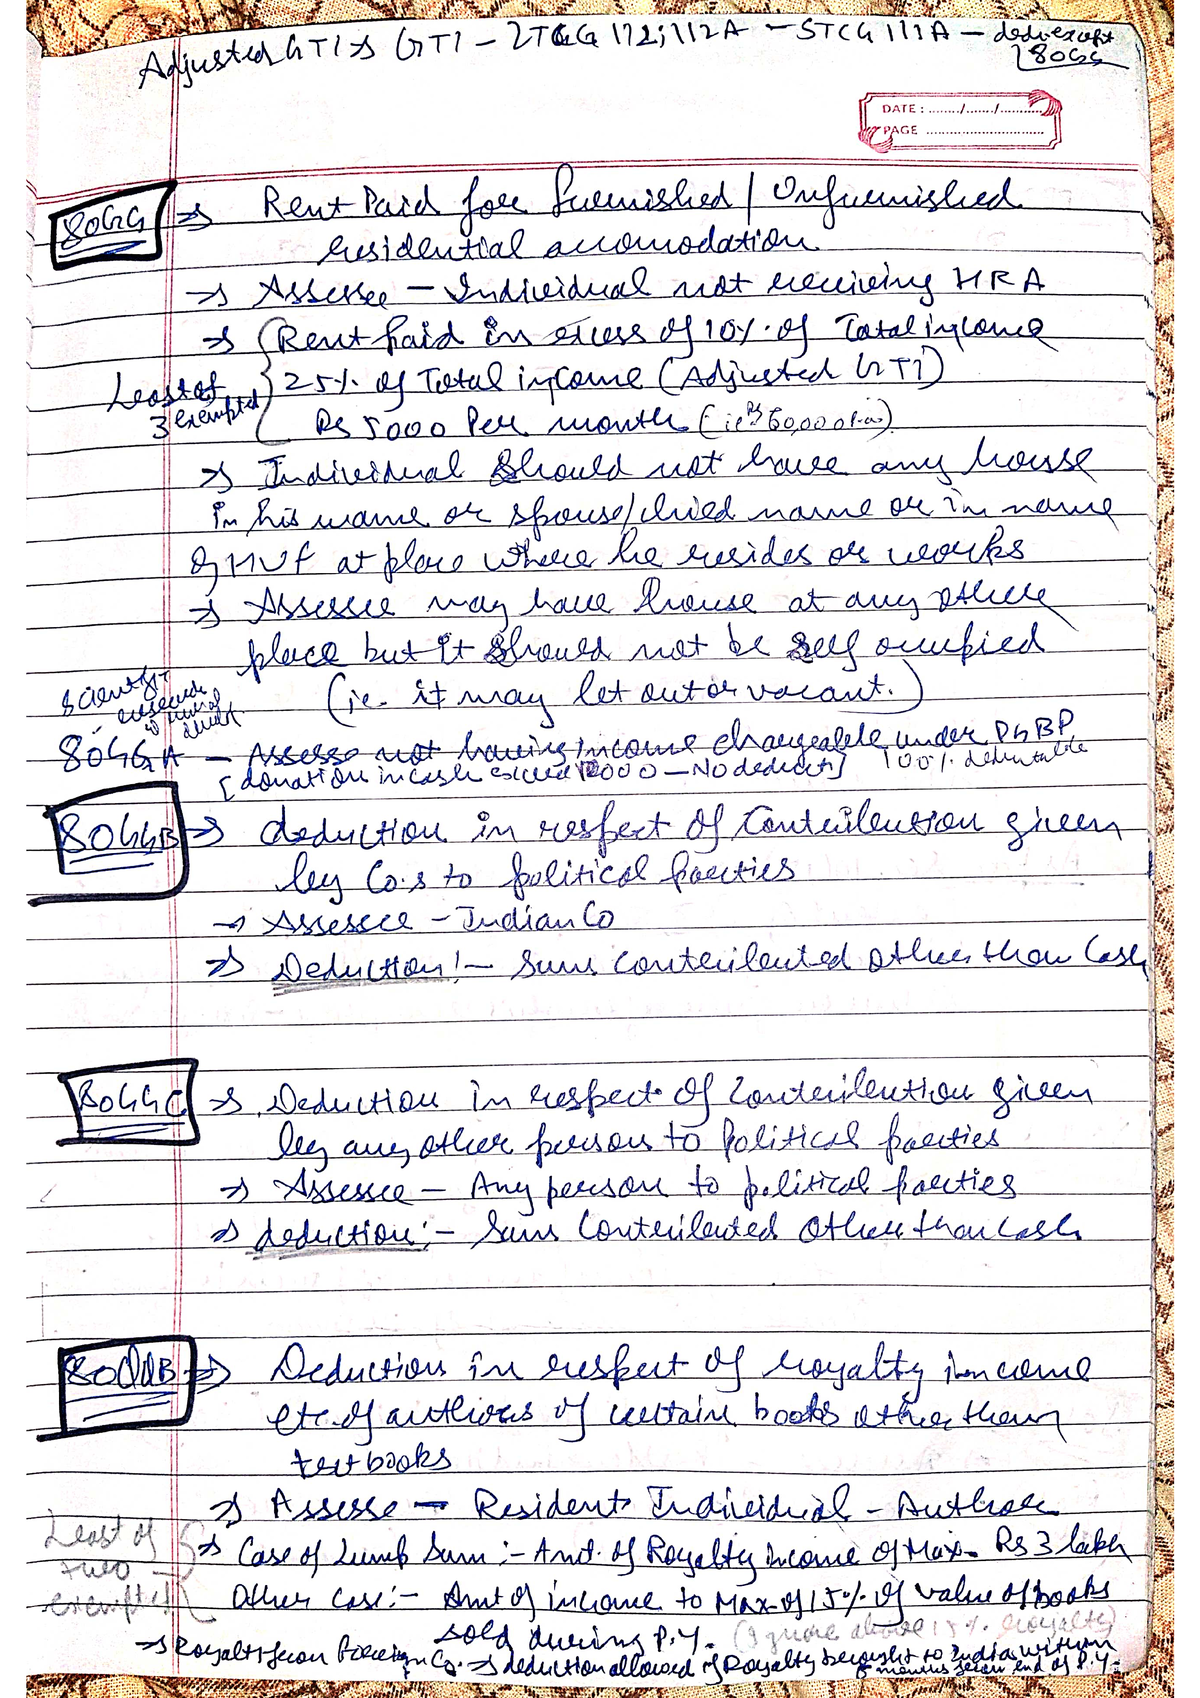 Adjusted GTI → GTI - LTCG 112; 112A - STCG 111A - ded. except
80GG
DATE : ......../......./...........
PAGE ..............................
80GG → Rent Paid for furnished / Unfurnished
residential accomodation
→ Assessee - Individual not receiving HRA
→ Rent Paid in excess of 10% of Total income
Least of 3 exempted
25% of Total income (Adjusted GTI)
Rs 5000 Per month (i.e Rs 60,000 P.a)
→ Individual Should not have any house
in his name or spouse/child name or in name
of HUF at place where he resides or works
→ Assessee may have house at any other
place but it should not be self occupied
(ie. it may let out or vacant.)
Scientific research
80GGA - Assesse not having income chargeable under PGBP
[donation in cash exceed 2000 - No deduct] 100% deductable
80GGB → deduction in respect of Contribution given
by Co.s to political parties
→ Assessee - Indian Co
→ Deduction :- Sum Contributed other than Cash
80GGC → Deduction in respect of Contribution given
by any other person to Political parties
→ Assessee - Any person to political parties
→ deduction :- Sum Contributed Other than Cash
80QQB → Deduction in respect of royalty income
etc. of authors of certain books other than
text books
→ Assesse - Resident Individual - Author
Least of two exempted
→ Case of Lump Sum :- Amt. of Royalty income of Max. Rs 3 lakh
Other Case :- Amt of income to Max of 15% of value of books
sold during P.Y. (Ignore above 15% Royalty)
→ Royalty from foreign Co. → deduction allowed if Royalty brought to India within
6 months from end of P.Y.